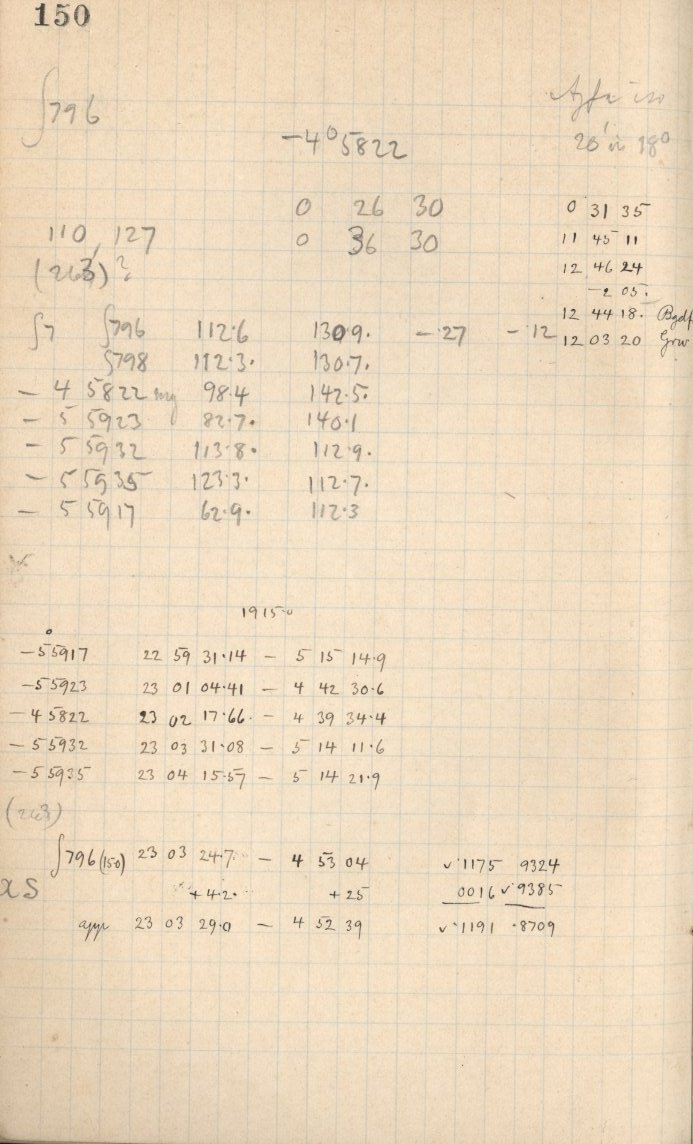 150
∫796
-4° 5822
20' in 18°
0 26 30
0 31 35
110, 127
0 36 30
11 45 11
(263)?
12 46 24
-2 05.
12 44 18. Bgdf
∫7 ∫796 112.6 130.9. -.27 -.12
12 03 20 Grw
∫798 112.3. 130.7.
- 4 5822 my 98.4 142.5.
- 5 5923 82.7. 140.1
- 5 5932 113.8. 112.9.
- 5 5935 123.3. 112.7.
- 5 5917 62.9. 112.3
1915.0
-5° 5917 22 59 31.14 - 5 15 14.9
-5 5923 23 01 04.41 - 4 42 30.6
-4 5822 23 02 17.66. - 4 39 34.4
-5 5932 23 03 31.08 - 5 14 11.6
-5 5935 23 04 15.57 - 5 14 21.9
(263)
∫796 (150) 23 03 24.7 - 4 53 04 √.1175 9324
XS +4.2. +25 0016 √9385
app 23 03 29.0 - 4 52 39 √.1191 .8709